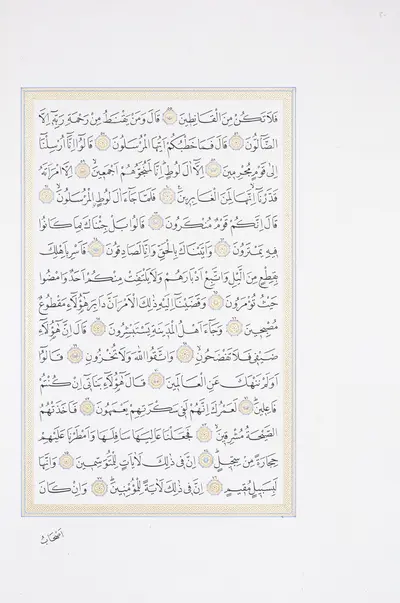 فَلَا تَكُنْ مِنَ الْقَانِطِينَ قَالَ وَمَنْ يَقْنَطُ مِنْ رَحْمَةِ رَبِّهِ إِلَّا
الضَّالُّونَ قَالَ فَمَا خَطْبُكُمْ أَيُّهَا الْمُرْسَلُونَ قَالُوا إِنَّا أُرْسِلْنَا
إِلَى قَوْمٍ مُجْرِمِينَ إِلَّا آلَ لُوطٍ إِنَّا لَمُنَجُّوهُمْ أَجْمَعِينَ إِلَّا امْرَأَتَهُ
قَدَّرْنَا إِنَّهَا لَمِنَ الْغَابِرِينَ فَلَمَّا جَاءَ آلَ لُوطٍ الْمُرْسَلُونَ
قَالَ إِنَّكُمْ قَوْمٌ مُنْكَرُونَ قَالُوا بَلْ جِئْنَاكَ بِمَا كَانُوا
فِيهِ يَمْتَرُونَ وَأَتَيْنَاكَ بِالْحَقِّ وَإِنَّا لَصَادِقُونَ فَأَسْرِ بِأَهْلِكَ
بِقِطْعٍ مِنَ اللَّيْلِ وَاتَّبِعْ أَدْبَارَهُمْ وَلَا يَلْتَفِتْ مِنْكُمْ أَحَدٌ وَامْضُوا
حَيْثُ تُؤْمَرُونَ وَقَضَيْنَا إِلَيْهِ ذَلِكَ الْأَمْرَ أَنَّ دَابِرَ هَؤُلَاءِ مَقْطُوعٌ
مُصْبِحِينَ وَجَاءَ أَهْلُ الْمَدِينَةِ يَسْتَبْشِرُونَ قَالَ إِنَّ هَؤُلَاءِ
ضَيْفِي فَلَا تَفْضَحُونِ وَاتَّقُوا اللَّهَ وَلَا تُخْزُونِ قَالُوا
أَوَلَمْ نَنْهَكَ عَنِ الْعَالَمِينَ قَالَ هَؤُلَاءِ بَنَاتِي إِنْ كُنْتُمْ
فَاعِلِينَ لَعَمْرُكَ إِنَّهُمْ لَفِي سَكْرَتِهِمْ يَعْمَهُونَ فَأَخَذَتْهُمُ
الصَّيْحَةُ مُشْرِقِينَ فَجَعَلْنَا عَالِيَهَا سَافِلَهَا وَأَمْطَرْنَا عَلَيْهِمْ
حِجَارَةً مِنْ سِجِّيلٍ إِنَّ فِي ذَلِكَ لَآيَاتٍ لِلْمُتَوَسِّمِينَ وَإِنَّهَا
لَبِسَبِيلٍ مُقِيمٍ إِنَّ فِي ذَلِكَ لَآيَةً لِلْمُؤْمِنِينَ وَإِنْ كَانَ
أَصْحَابُ